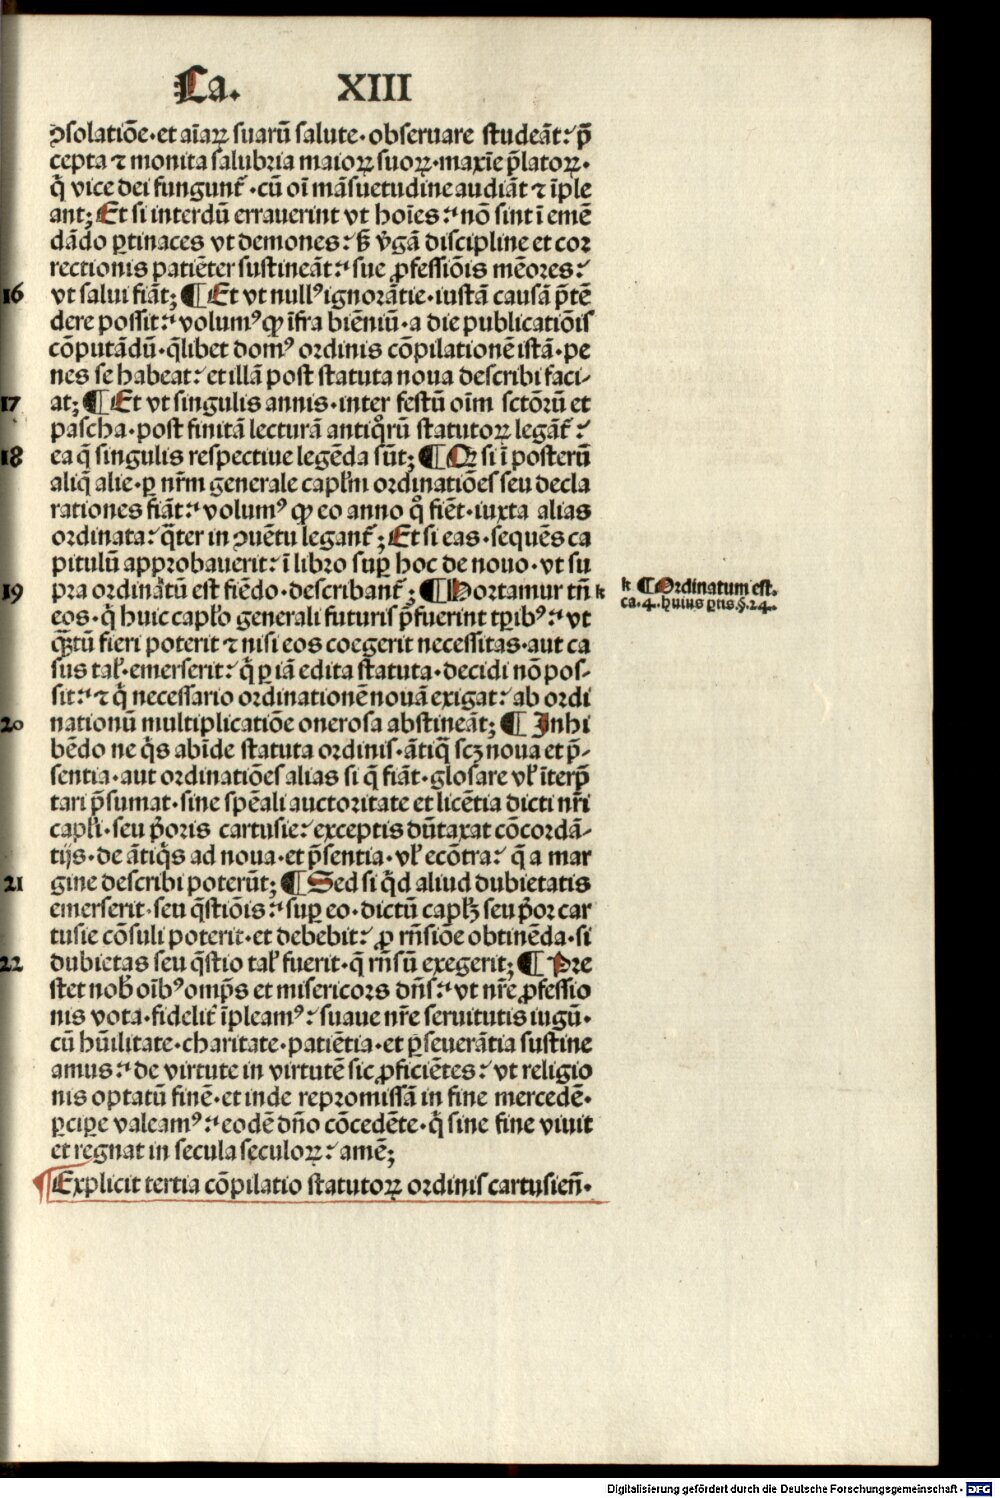 Ca. XIII
ↄsolatiōe·et aīaꝝ suarū salute·obseruare studeāt: p̄
cepta ⁊ monita salubria maioꝝ suoꝝ·maxīe p̄latoꝝ·
q̇ vice dei fungunt᷑·cū oī māsuetudine audiāt ⁊ īple
ant; Et si interdū errauerint vt hoīes: nō sint ī emē
dādo ꝑtinaces vt demones: ß v̓gā discipline et cor
rectionis patiēter sustineāt: sue ꝓfessiōis mēores:
16 vt salui fiāt; ¶ Et vt nullꝰ ignorātie·iustā causā p̄tē
dere possit: volumꝰ ꝙ īfra biēniū·a die publicatiōis
cōputādū·q̄libet domꝰ ordinis cōpilationē istā·pe
nes se habeat: et illā post statuta noua describi faci-
17 at; ¶ Et vt singulis annis·inter festū oīm sctōrū et
pascha·post finitā lecturā antiq̊rū statutoꝝ legāt᷑:
18 ea q̄ singulis respectiue legēda sūt; ¶ Ꝙ si ī posterū
aliq̄ alie·ꝑ nr̄m generale capl̄m ordinatiōes seu decla
rationes fiāt: volumꝰ ꝙ eo anno q̊ fiēt·iuxta alias
ordinata: q̄ter in ↄuētu legant᷑; Et si eas·sequēs ca
pitulū approbauerit: ī libro suꝑ hoc de nouo·vt su
19 pra ordinatū est fiēdo·describant᷑; ¶ Hortamur tn̄ k
eos·q̇ huic capl̓o generali futuris p̄fuerint tꝑibꝰ: vt
q̄ꝫtū fieri poterit ⁊ nisi eos coegerit necessitas·aut ca
sus tal̓·emerserit: q̇ ꝑ iā edita statuta·decidi nō pos-
sit: ⁊ q̇ necessario ordinationē nouā exigat: ab ordi
20 nationū multiplicatiōe onerosa abstineāt; ¶ Inhi
bēdo ne q̇s abīde statuta ordinis·ātiq̄ scꝫ noua et p̄-
sentia·aut ordinatiōes alias si q̄ fiāt·glosare vl̓ īterp̄
tari p̄sumat·sine spēali auctoritate et licētia dicti nr̄i
capl̓i·seu p̓oris cartusie: exceptis dūtaxat cōcordā-
tijs·de ātiq̇s ad noua·et p̄sentia·vl̓ ecōtra: q̄ a mar
21 gine describi poterūt; ¶ Sed si q̇d aliud dubietatis
emerserit·seu q̄stiōis: suꝑ eo·dictū capl̓ꝫ seu p̓or car
tusie cōsuli poterit·et debebit: ꝓ rn̄siōe obtinēda·si
22 dubietas seu q̄stio tal̓ fuerit·q̄ rn̄sū exegerit; ¶ Pre
stet nob̓ oībꝰ omp̄s et misericors dn̄s: vt nr̄e ꝓfessio
nis vota·fidelit᷑ īpleamꝰ: suaue nr̄e seruitutis iugū·
cū hūilitate·charitate·patiētia·et ꝑseuerātia sustine
amus: de virtute in virtutē sic ꝓficiētes: vt religio
nis optatū finē·et inde repromissā in fine mercedē·
ꝑciꝑe valeamꝰ: eodē dn̄o cōcedēte·q̇ sine fine viuit
et regnat in secula seculoꝝ: amē;
Explicit tertia cōpilatio statutoꝝ ordinis cartusien̄·
k ¶ Ordinatum est.
ca.4. huius ꝑtis.§.24.
Digitalisierung gefördert durch die Deutsche Forschungsgemeinschaft - DFG